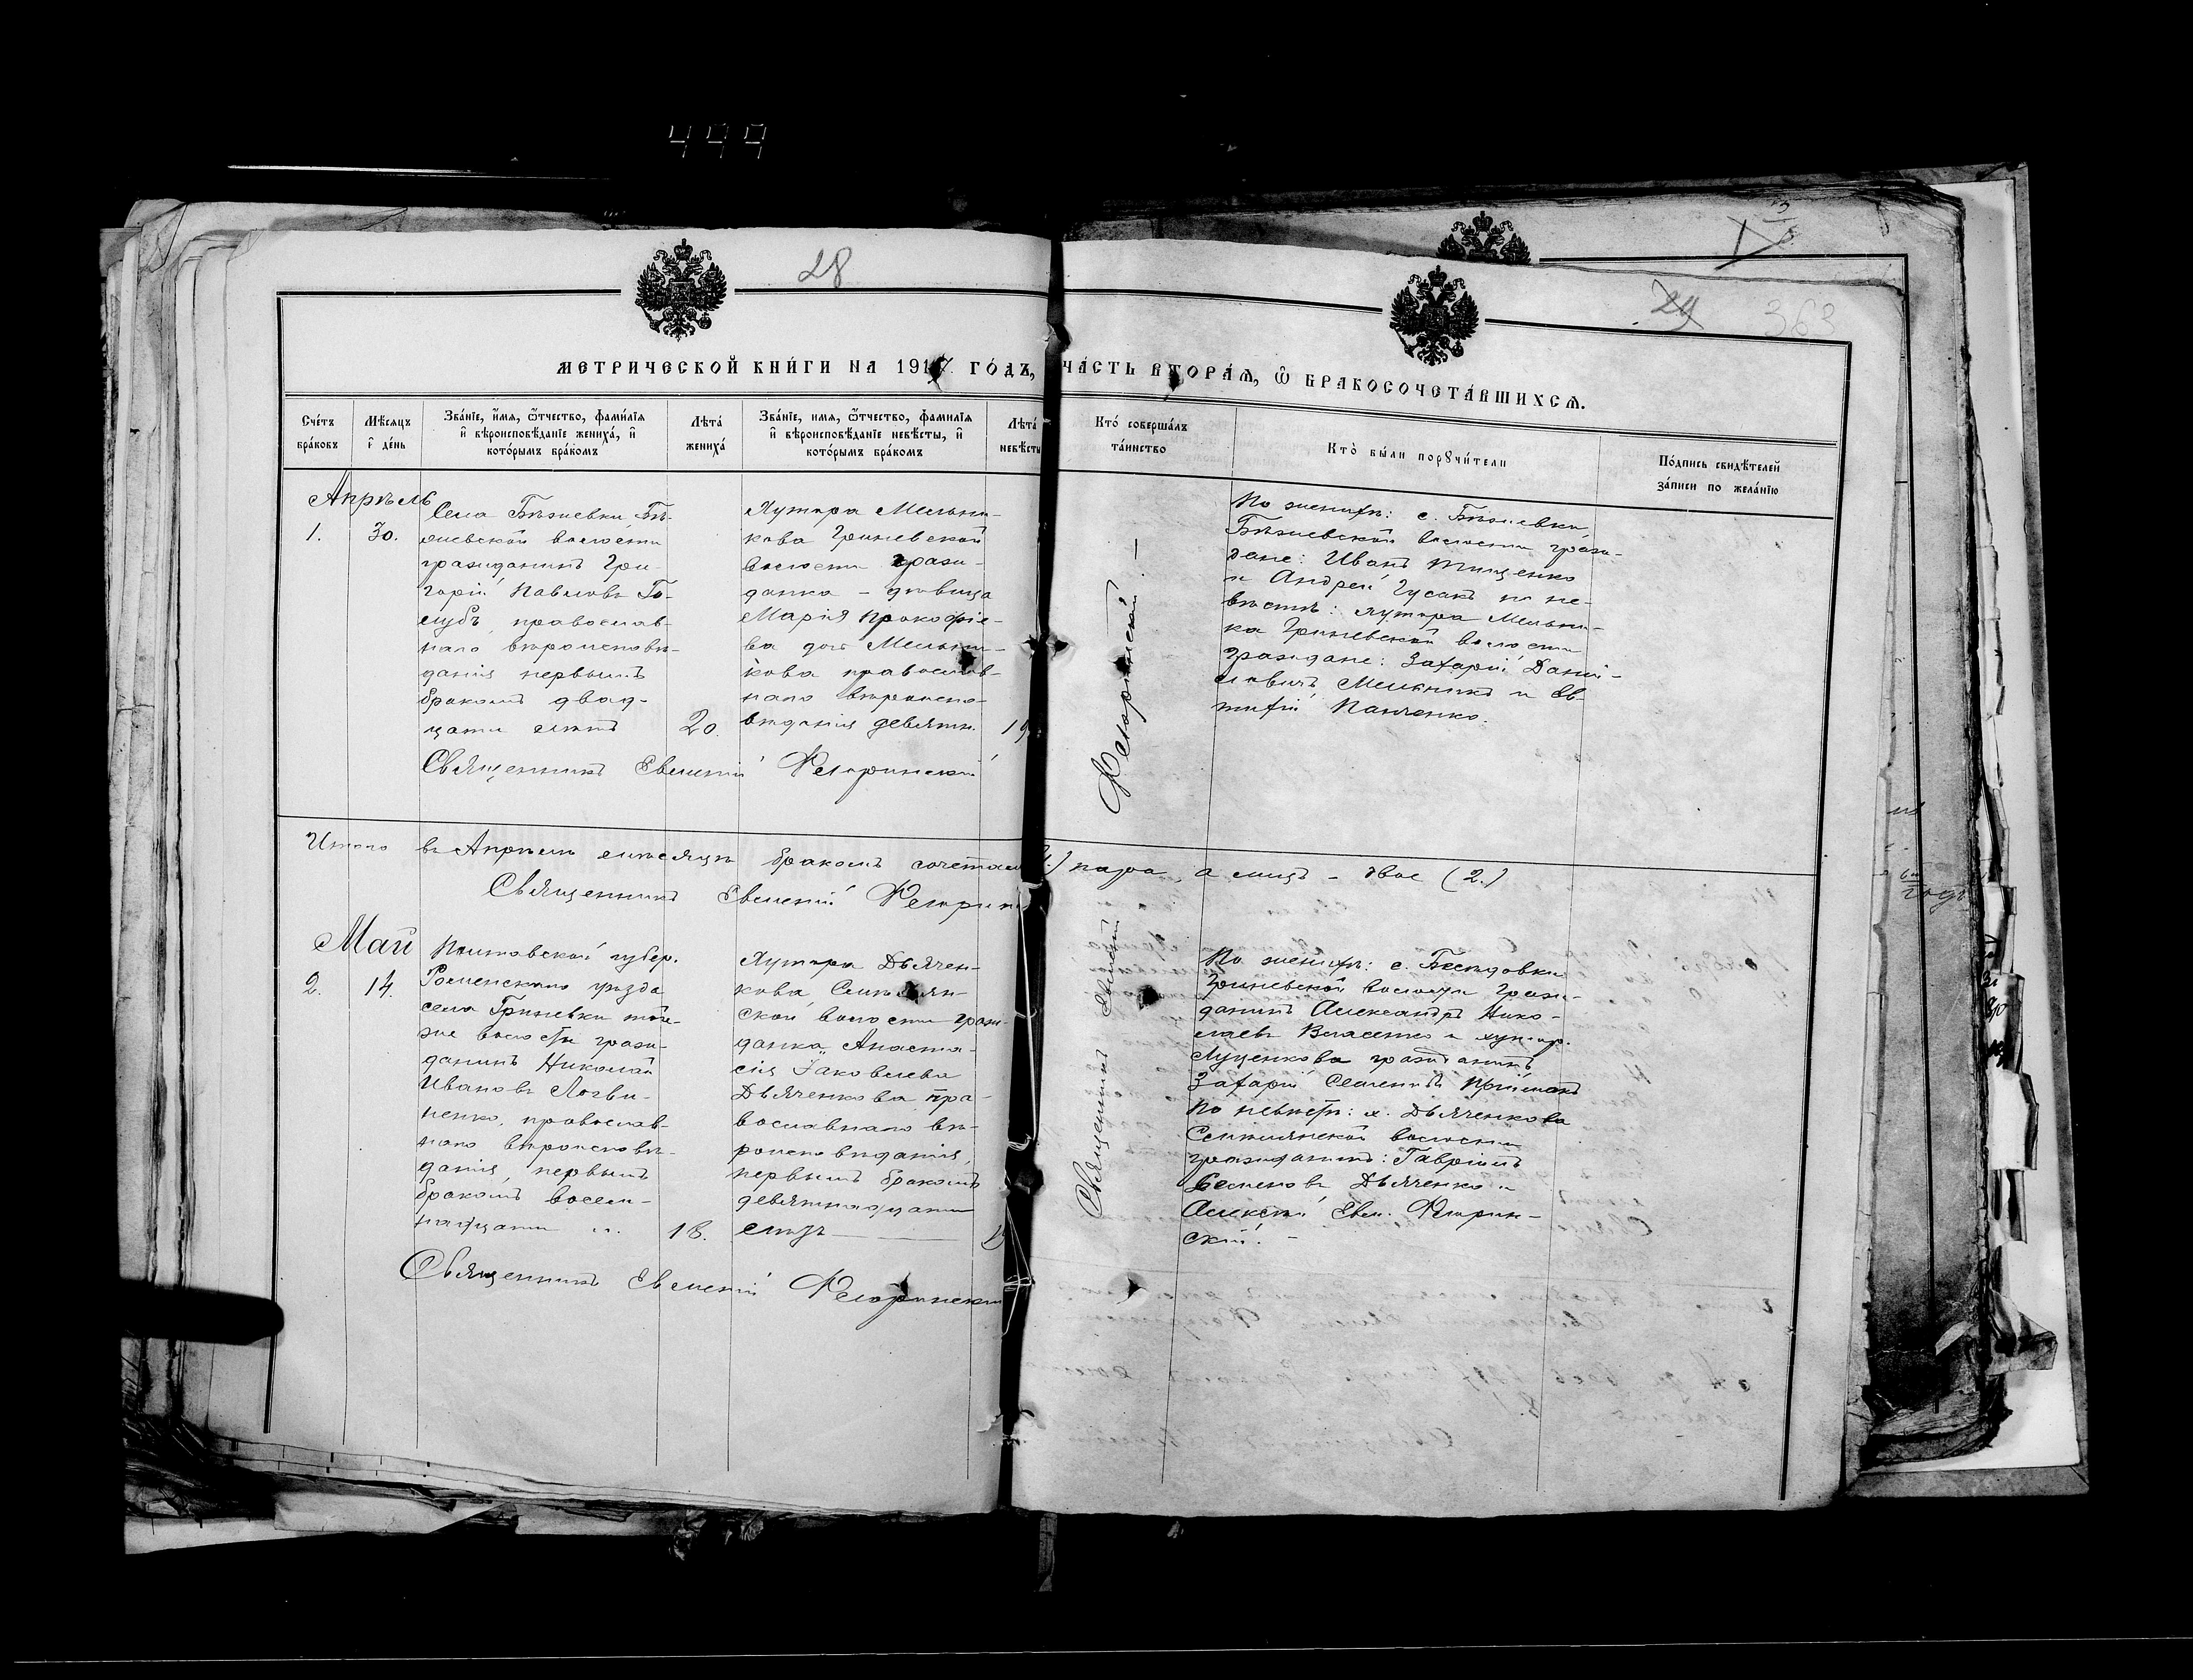 499
28
29
363
МЕТРИЧЕСКОЙ КНИ́ГИ НА 1917 ГО́ДЪ, ЧА́СТЬ ВТОРА́Ѧ, Ѡ҆ БРАКОСОЧЕТА́ВШИХСѦ.
Сче́тъ
бра́ковъ
Мѣ́сяцъ
и҆ де́нь
Зва́нїе, и҆́мя, ѻ҆́тчество, фами́лїя
и҆ вѣроисповѣ́данїе жениха́, и҆
кото́рымъ бра́комъ
Лѣта́
жениха́
Зва́нїе, имя, ѻ҆́тчество, фамилїя
и҆ вѣроисповѣ́данїе невѣ́сты, и҆
кото́рымъ бра́комъ
Лѣта́
невѣ́сты
Кто́ соверша́лъ
та́инство
Кто̀ бы́ли порꙋчи́тели
По́дпись свидѣ́телей
за́писи по жела́нїю
Апрѣль
1.
30.
Села Бѣжевки, Бѣ-
жевской волости
гражданинъ Гри-
горій Павловъ Го-
лубъ, православ-
наго вѣроисповѣ-
данія первымъ
бракомъ двад-
цати лѣтъ
20.
Хутора Мельни-
кова Гриневской
волости граж-
данка - дѣвица
Марія Прокофіе-
ва доч Мельни-
кова православ-
наго вѣроиспо-
вѣданія девятн.
19
Священникъ Евменій Флоринскій
Флоринскій. —
По женихѣ: с. Бѣжевки
Бѣжевской волости граж-
дане: Иванъ Тищенко
и Андрей Гусакъ по не-
вѣстѣ: хутора Мельни-
ка Гриневской волости
граждане: Захарій Дани-
ловичъ Мельникъ и Ев-
тифій Панченко.
Итого въ Апрѣлѣ мѣсяцѣ бракомъ сочетал 1.) пара, а лицъ - двое (2.)
Священникъ Евменій Флорин
Май
2.
14.
Полтавской губер.
Роменскаго уѣзда
села Гриневки той-
же волости граж-
данинъ Николай
Ивановъ Логви-
ненко, православ-
наго вѣроисповѣ-
данія, первымъ
бракомъ восем-
надцати л.
18.
Хутора Дьячен-
кова, Смѣлян-
ской волости граж-
данка Анаста-
сія Іаковлева
Дьяченкова пра-
вославнаго вѣ-
роисповѣданія,
первымъ бракомъ
девятнадцати
лѣтъ
Священникъ Евменій Флоринскій
Священникъ Евменій
По женихѣ: с. Бесѣдовки
Гриневской волости граж-
данинъ Александръ Нико-
лаевъ Власенко и хутор.
Луценкова гражданинъ
Захарій Семеновъ Пріймакъ
По невѣстѣ: х. Дьяченкова
Смѣлянской волости
гражданинъ: Гавріилъ
Семеновъ Дьяченко и
Алексѣй Евм. Флорин-
скій. —